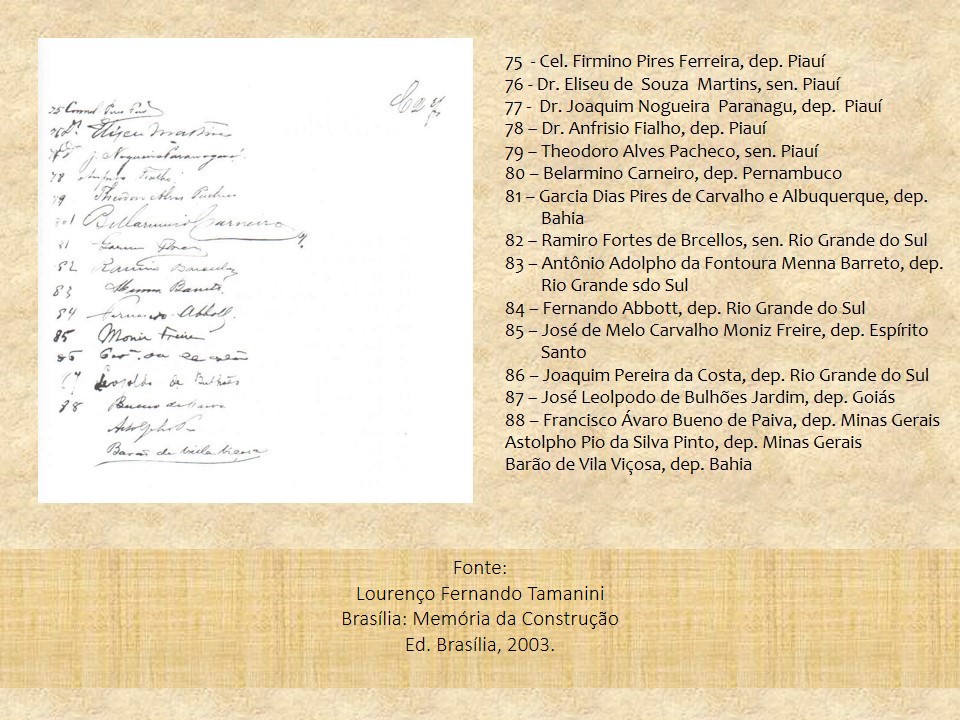 75 Coronel Pires Ferr
76 Dr. Eliseu Martins
77 Dr J. Nogueira Paranaguá.
78 Anfrisio Fialho
79 Theodoro Alves Pacheco
80 Bellarmino Carneiro
81 Garcia Pires
82 Ramiro Barcellos
83 Menna Barreto
84 Fernando Abbott.
85 Moniz Freire
86
87 Leopoldo de Bulhões
88 Bueno de Paiva
Astolpho Pio
Barão de Villa Viçosa
75 - Cel. Firmino Pires Ferreira, dep. Piauí
76 - Dr. Eliseu de Souza Martins, sen. Piauí
77 - Dr. Joaquim Nogueira Paranagu, dep. Piauí
78 – Dr. Anfrisio Fialho, dep. Piauí
79 – Theodoro Alves Pacheco, sen. Piauí
80 – Belarmino Carneiro, dep. Pernambuco
81 – Garcia Dias Pires de Carvalho e Albuquerque, dep.
Bahia
82 – Ramiro Fortes de Brcellos, sen. Rio Grande do Sul
83 – Antônio Adolpho da Fontoura Menna Barreto, dep.
Rio Grande sdo Sul
84 – Fernando Abbott, dep. Rio Grande do Sul
85 – José de Melo Carvalho Moniz Freire, dep. Espírito
Santo
86 – Joaquim Pereira da Costa, dep. Rio Grande do Sul
87 – José Leolpodo de Bulhões Jardim, dep. Goiás
88 – Francisco Ávaro Bueno de Paiva, dep. Minas Gerais
Astolpho Pio da Silva Pinto, dep. Minas Gerais
Barão de Vila Viçosa, dep. Bahia
Fonte:
Lourenço Fernando Tamanini
Brasília: Memória da Construção
Ed. Brasília, 2003.